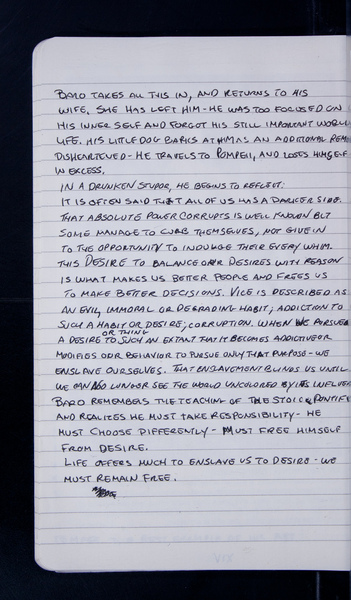 BARO TAKES ALL THIS IN, AND RETURNS TO HIS
WIFE. SHE HAS LEFT HIM - HE WAS TOO FOCUSED ON
HIS INNER SELF AND FORGOT HIS STILL IMPORTANT WORLDLY
LIFE. HIS LITTLE DOG BARKS AT HIM AS AN ADDITIONAL REM
DISHEARTENED - HE TRAVELS TO POMPEII, AND LOSES HIMSELF
IN EXCESS.
IN A DRUNKEN STUPOR, HE BEGINS TO REFLECT:
IT IS OFTEN SAID THAT ALL OF US HAS A DARKER SIDE.
THAT ABSOLUTE POWER CORRUPTS IS WELL KNOWN BUT
SOME MANAGE TO CURB THEMSELVES, NOT GIVE IN
TO THE OPPORTUNITY TO INDULGE THEIR EVERY WHIM.
THIS DESIRE TO BALANCE OUR DESIRES WITH REASON
IS WHAT MAKES US BETTER PEOPLE AND FREES US
TO MAKE BETTER DECISIONS. VICE IS DESCRIBED AS
AN EVIL, IMMORAL OR DEGRADING HABIT; ADDICTION TO
SUCH A HABIT OR DESIRE; CORRUPTION. WHEN WE PURSUE
OR THING
A DESIRE TO SUCH AN EXTANT THAT IT BECOMES ADDICTIVE OR
MODIFIES OUR BEHAVIOR TO PURSUE ONLY THAT PURPOSE - WE
ENSLAVE OURSELVES. THAT ENSLAVEMENT BLINDS US UNTIL
WE CAN NO LONGER SEE THE WORLD UNCOLORED BY ITS INFLUEN
BARO REMEMBERS THE TEACHING OF THE STOIC PONTIFE
AND REALIZES HE MUST TAKE RESPONSIBILITY - HE
MUST CHOOSE DIFFERENTLY - MUST FREE HIMSELF
FROM DESIRE.
LIFE OFFERS MUCH TO ENSLAVE US TO DESIRE - WE
MUST REMAIN FREE.